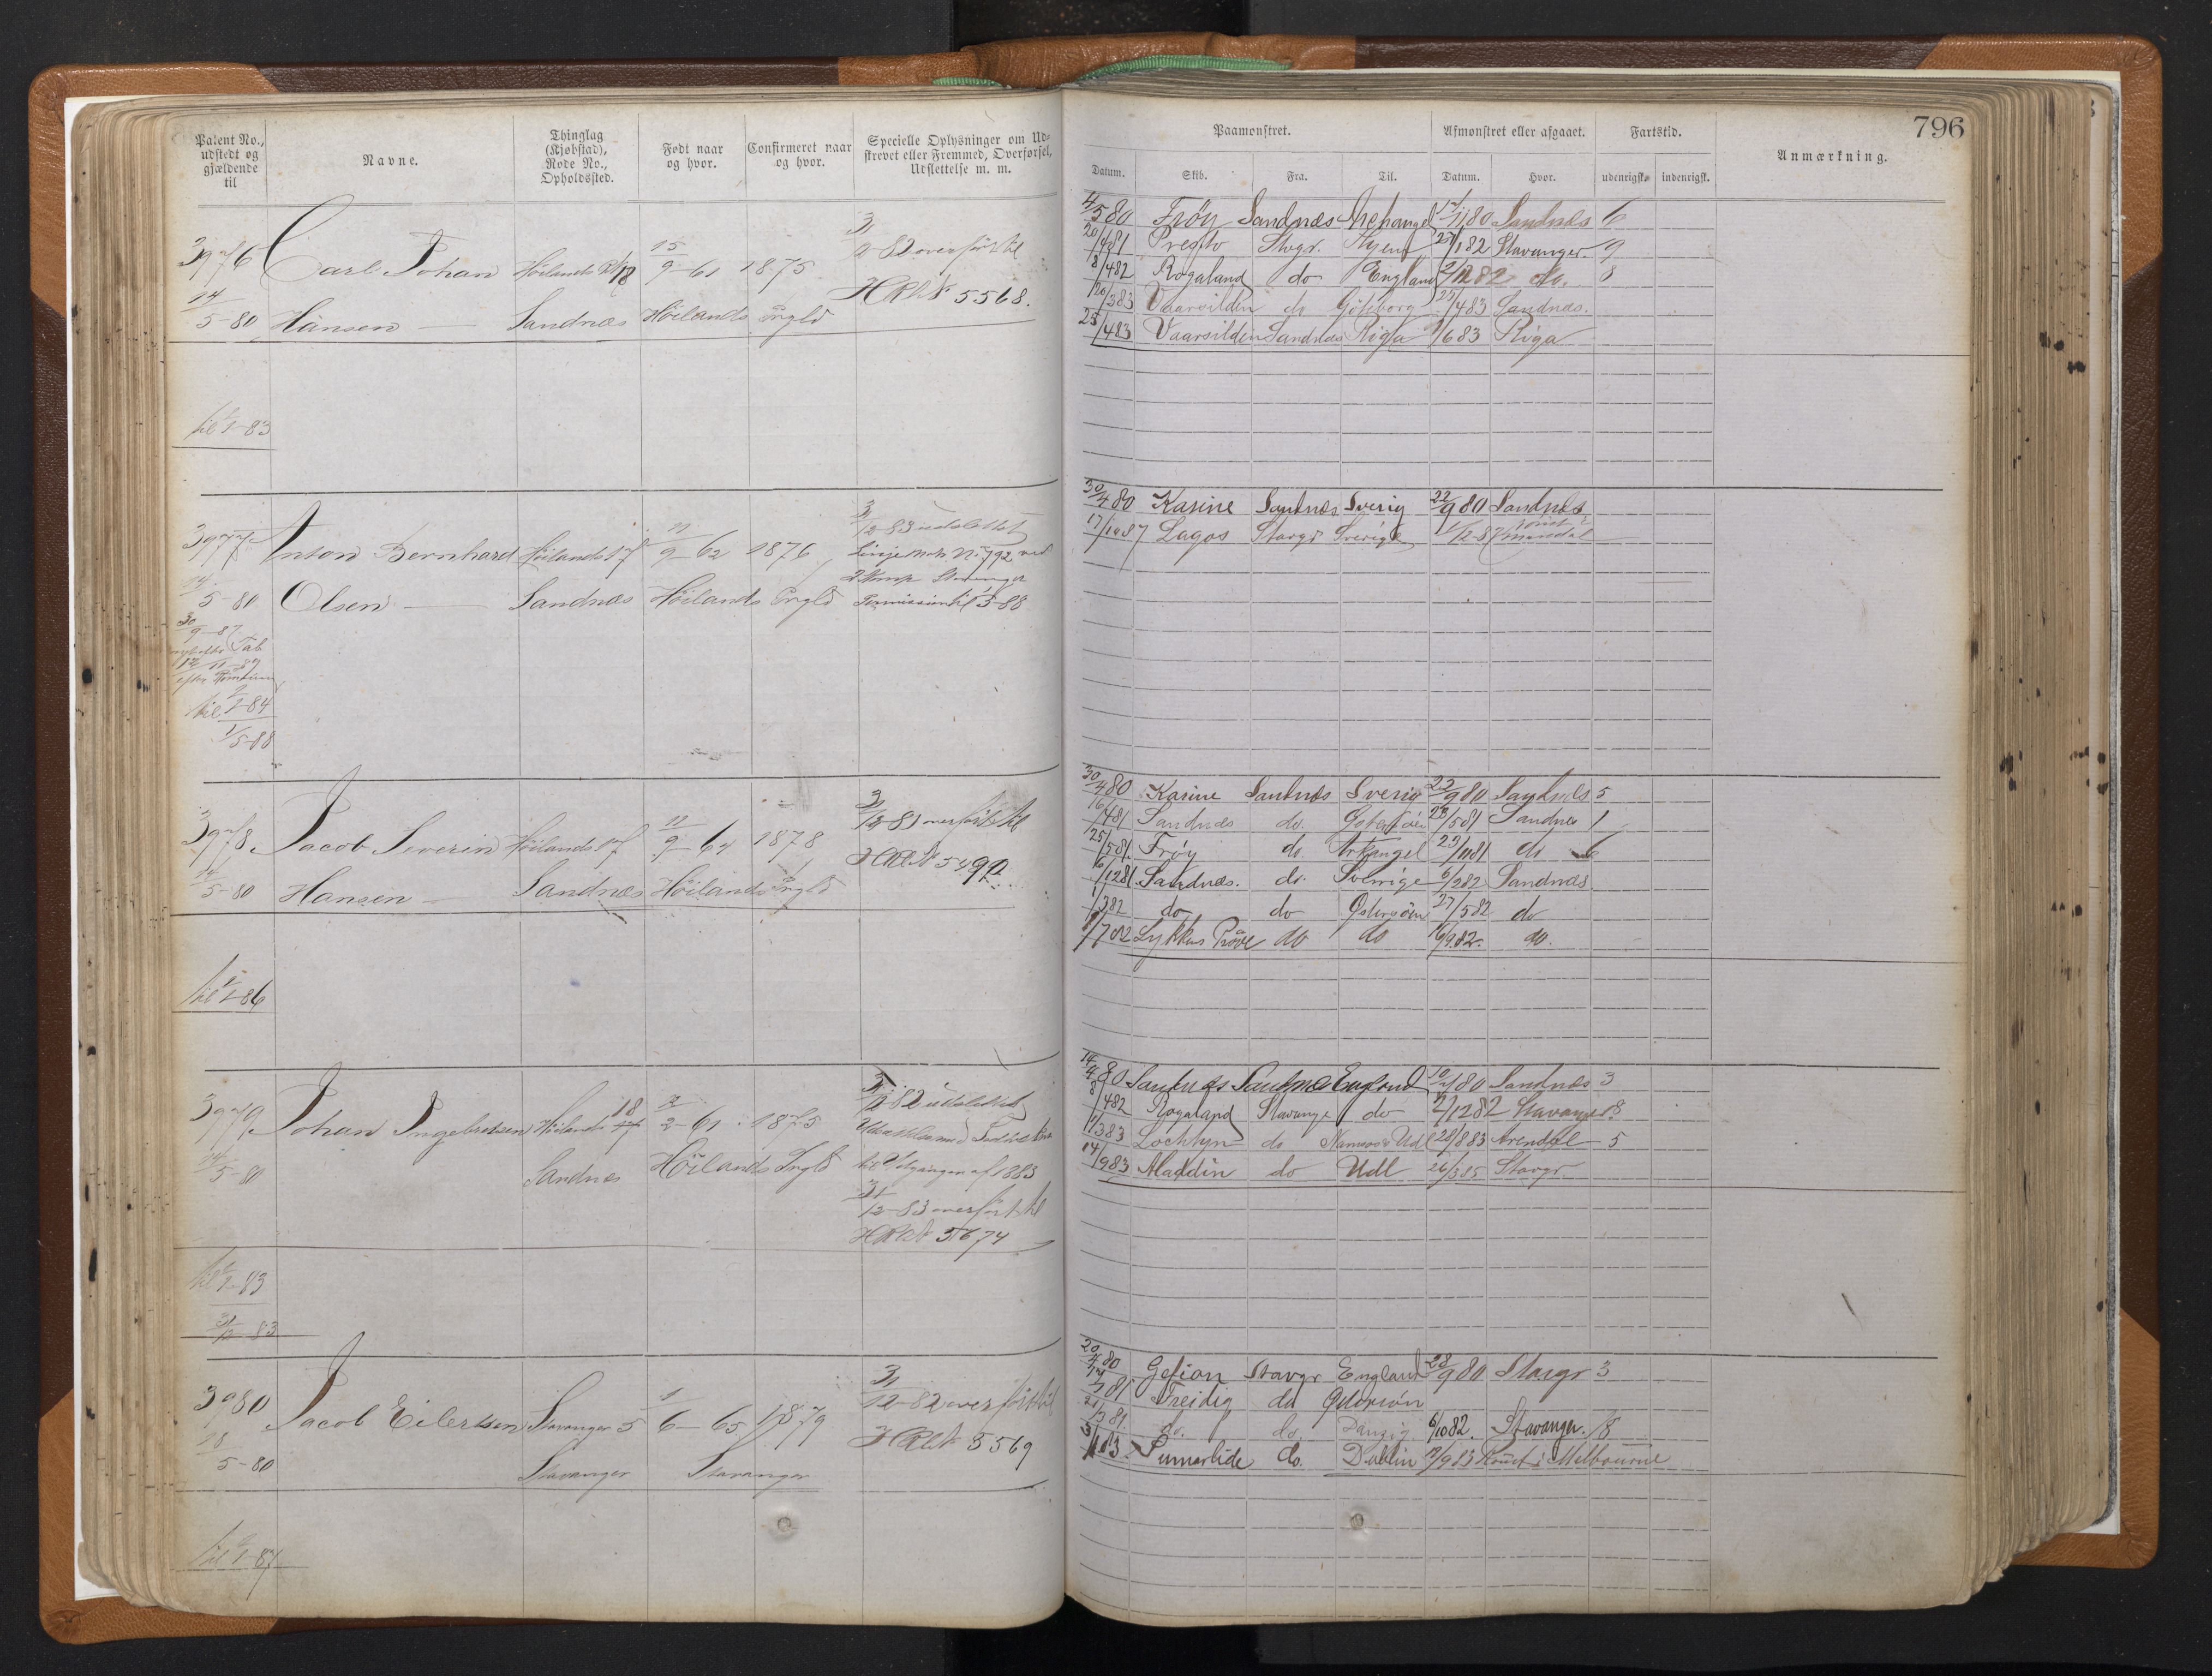 796
Patent No., udstedt og gjældende til
Navne.
Thinglag (Kjøbstad), Rode No., Opholdssted.
Født naar og hvor.
Confirmeret naar og hvor.
Specielle Oplysninger om Udskrevet eller Fremmed, Overførsel, Udslettelse m. m.
Paamønstret.
Afmønstret eller afgaaet.
Fartstid.
Anmærkning.
Datum. Skib. Fra. Til. Datum. Hvor. udenrigsk. indenrigsk.
3976 Carl Johan Høilands 18 15/9-61 1875 31/12-82 overført til
14/5-80 Hansen Sandnæs Høilands Prgld HRLN 5568.
til 1/1-83
4/5 80 Frøy Sandnæs Archangel 80 Sandnæs 6
20/4 81 Presto Stvgr. 82 Stavanger. 9
8/4 82 Rogaland do England 82 do. 8
20/3 83 Vaarsilden do Göteborg 23/4 83 Sandnæs.
25/4 83 Vaarsilden Sandnæs Riga /6 83 Riga
3977 Anton Bernhard Høilands 17 11/9-62 1876 31/12-83 udslettet
14/5-80 Olsen Sandnæs Høilands Prgld
Linje No 792 ved
Stavanger
Permission til 1/5-88
30/9-87
Tab
12/11-87
til 1/1-84
1/5-88
30/4 80 Karine Sandnæs Sverig 22/9 80 Sandnæs
17/10 87 Lagos Stavgr Sverige 1/12-87 Mandal
3978 Jacob Severin Høilands 17 11/9-64 1878 31/12-81 overført til
14/5-80 Hansen Sandnæs Høilands Prgld HRLN 5492.
til 1/1-86
30/4 80 Karine Sandnæs Sverig 22/9 80 Sandnæs 5
16/4 81 Sandnæs do. 28/5 81 Sandnes 1
25/5 81 Frøy do. Arkangel 23/11 81 do 6
6/12 81 Sandnæs. do. Sverrige 6/2 82 Sandnæs
1/3 82 do do Østersøen 27/5 82 do
1/7 82 Lykkens Prøve do do 16/9 82. do.
3979 Johan Ingebretsen Høilands 18 2/2-61 1875 31/12-82 udslettet
14/5-80 Sandnæs Høilands Prgld
til Udgangen af 1883
31/12-83 overført til
HRLN 5674
til 1/1-83
31/12 83
14/4 80 Sandnæs Sandnæs England 10/7 80 Sandnæs 3
8/4 82 Rogaland Stavange do 2/12 82 Stavanger. 8
1/3 83 Lochlyn do Namsos & Udl 28/8 83 Arendal 5
14/9 83 Aladdin do Udl 26/3 85 Stavgr.
3980 Jacob Eilertsen Stavanger 5 1/6-65 1879 31/12-82 overført til
18/5-80 Stavanger Stavanger HRLN 5569
til 1/1-87
20/4 80 Gefion Stavgr England 28/9 80 Stavgr 3
81 Freidig do Østersøen
21/3 81. do. do. Danzig 6/10 82. Stavanger. 18
83 Sumarlide do. Dublin 9 83 Rømt i Melbourne